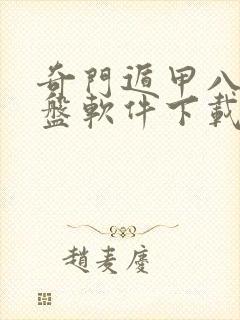 奇門遁甲八
盤軟件下載
趙麦慶